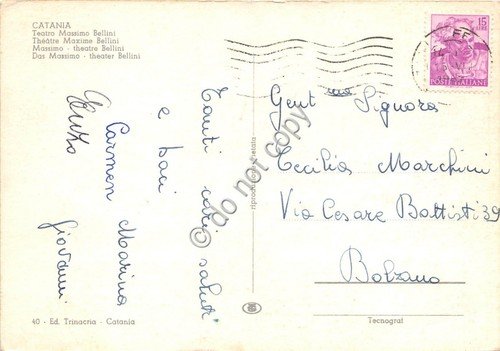 CATANIA
Teatro Massimo Bellini
Théâtre Maxime Bellini
Massimo - theatre Bellini
Das Massimo - theater Bellini
Tanti cari saluti
e baci
Carmen Marina
Enzo
Giovanni
40 - Ed. Trinacria - Catania
riproduzione vietata
do not copy
15
LIRE
POSTE ITALIANE
Gent ma Signora
Cecilia Marchini
Via Cesare Battisti 39
Bolzano
Tecnograf